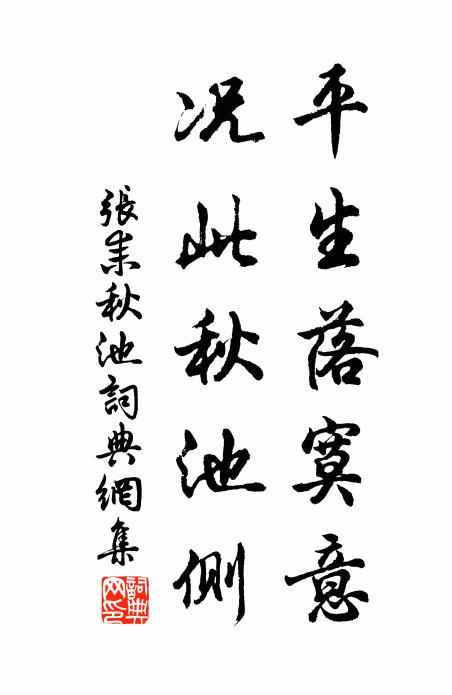 平生落寞意
况此秋池側
張耒秋池詞典網集
詞典网印